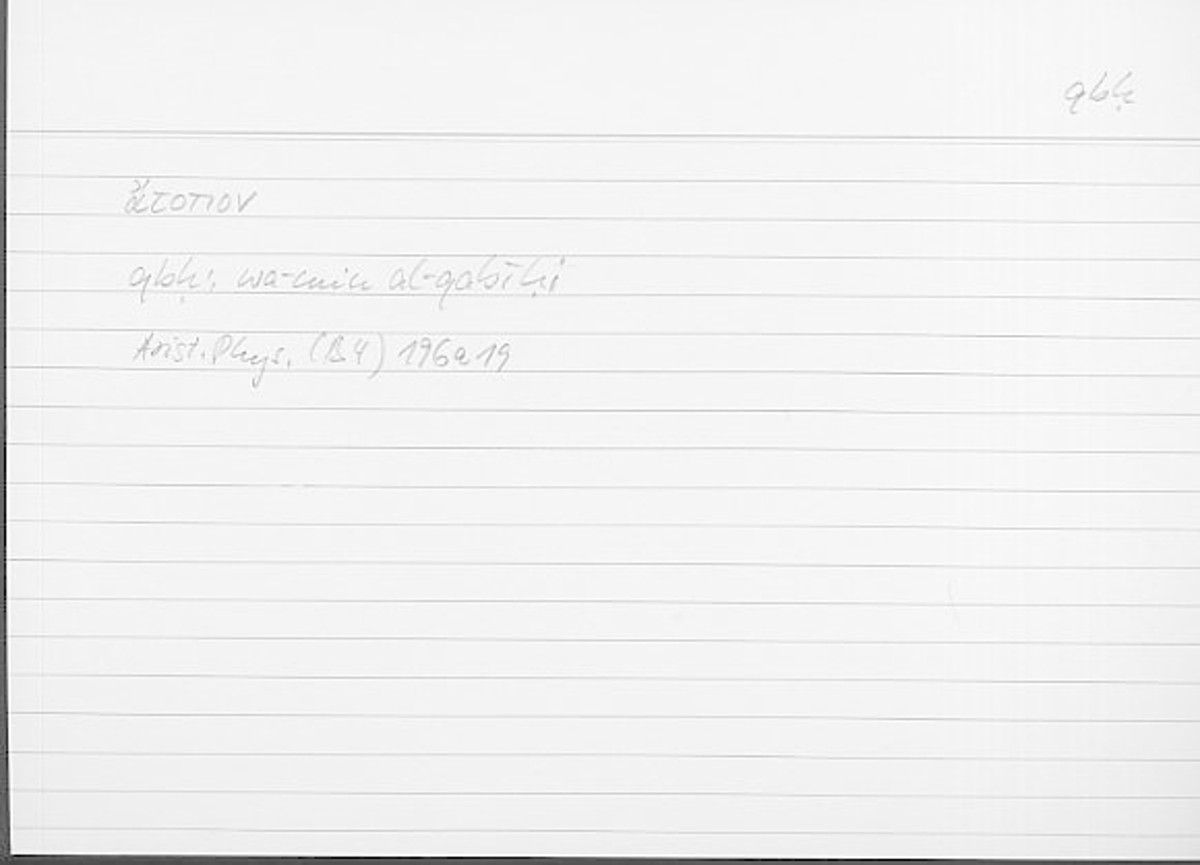 qbḥ
ἄτοπον
qbḥ: wa-min al-qabīḥi
Arist. Phys. (B4) 196a19